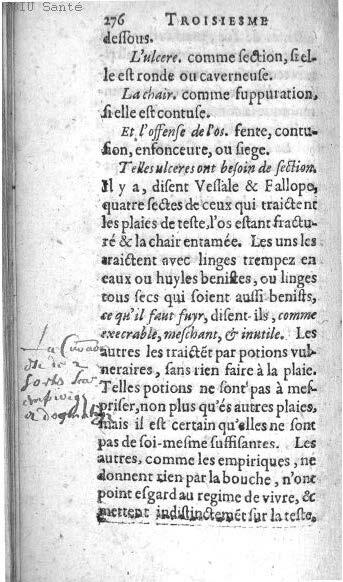 BIU Santé
276 TROISIESME
dessous.
L'ulcere. comme section, si el-
le est ronde ou caverneuse.
La chair. comme suppuration,
si elle est contuse.
Et l'offense de l'os. fente, contu-
sion, enfonceure, ou siege.
Telles ulceres ont besoin de section.
Il y a, disent Vesale & Fallope,
quatre sectes de ceux qui traictent
les plaies de teste, l'os estant fractu-
ré & la chair entamée. Les uns les
traictent avec linges trempez en
eaux ou huyles benistes, ou linges
tous secs qui soient aussi benists,
ce qu'il faut fuyr, disent-ils, comme
execrable, meschant, & inutile. Les
autres les traictẽt par potions vul-
neraires, sans rien faire à la plaie.
Telles potions ne sont pas à mes-
priser, non plus qu'és autres plaies,
mais il est certain qu'elles ne sont
pas de soi-mesme suffisantes. Les
autres, comme les empiriques, ne
donnent rien par la bouche, n'ont
point esgard au regime de vivre, &
mettent indistinctemẽt sur la teste,